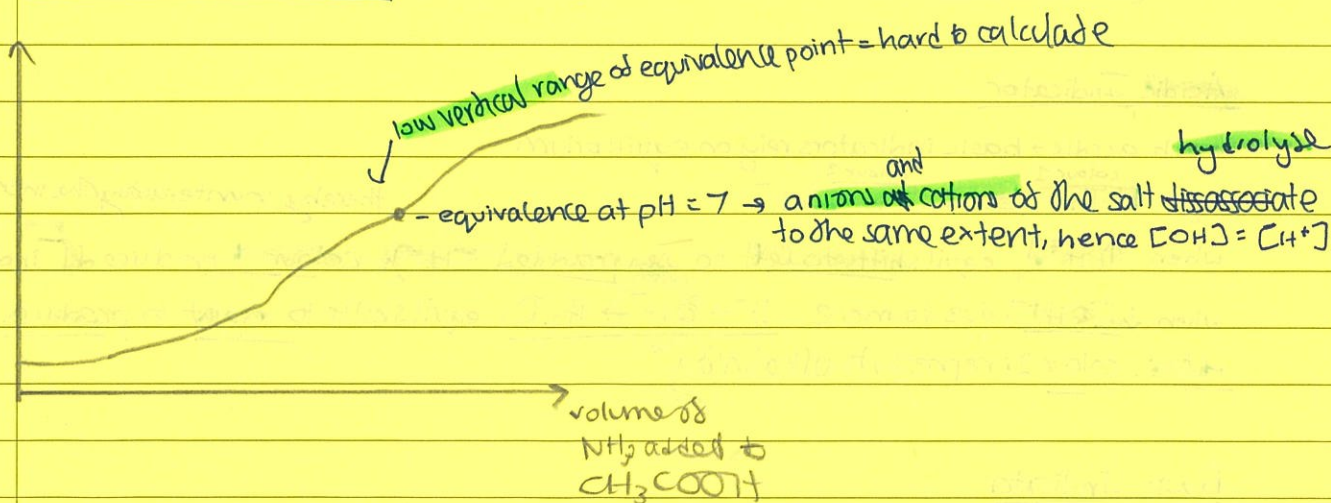 low vertical range of equivalence point = hard to calculate
and
hydrolyse
- equivalence at pH = 7 → anions cations of the salt dissasosiate
to the same extent, hence [OH] = [H⁺]
volume of
NH₃ added to
CH₃COOH